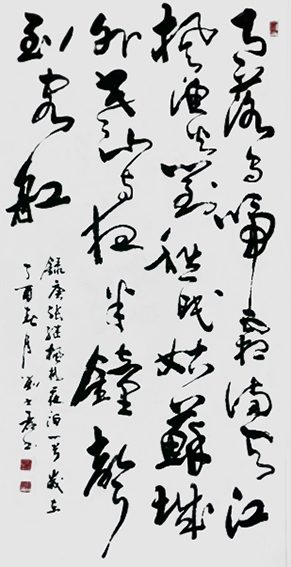 月落烏啼霜满天江
枫渔火對愁眠姑蘇城
外寒山寺夜半鐘聲
到客船
録唐張继楓橋夜泊一首歲在
丁酉秋月书